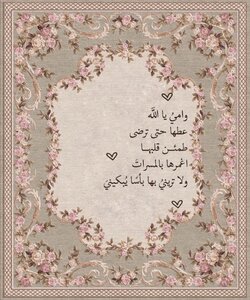 وامي يا الله
عطها حتى ترضى
طمئـن قلبهـا
اغمرها بالمسرات
ولا تريني بها بأسًا يُبكيني